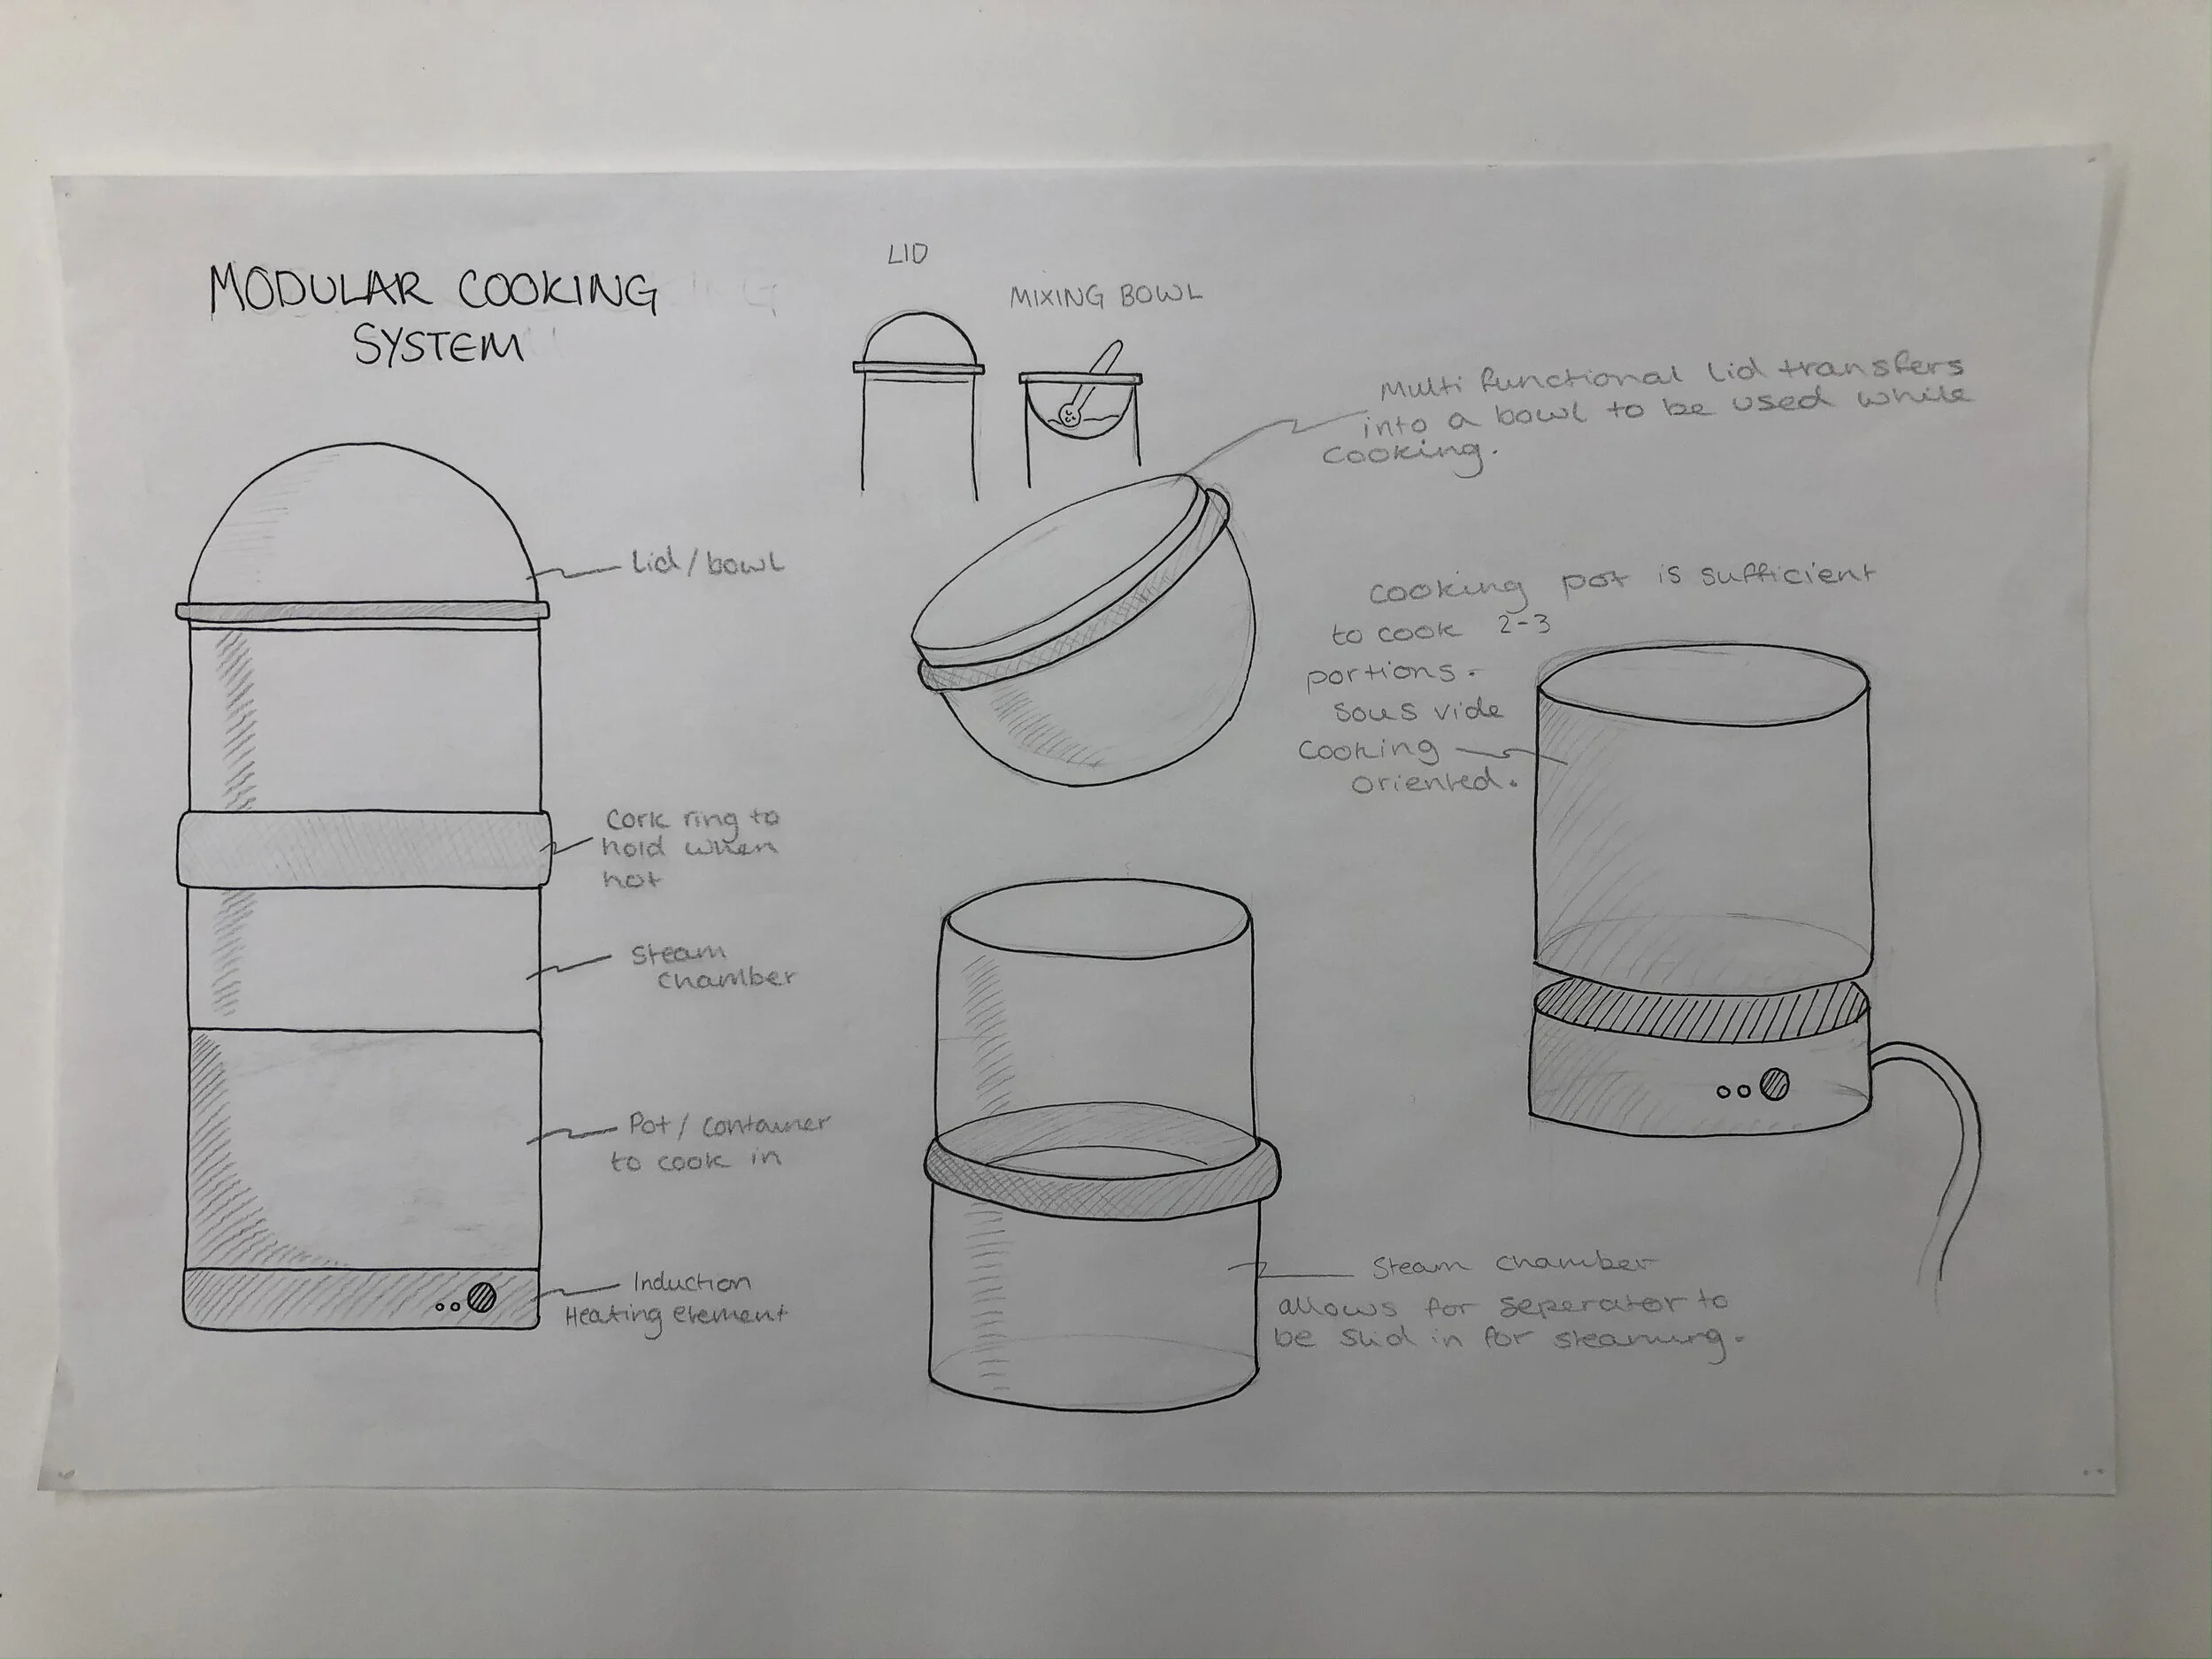 MODULAR COOKING
SYSTEM
LID
MIXING BOWL
Multi functional lid transfers
into a bowl to be used while
cooking.
Lid / bowl
Cork ring to
hold when
hot
Steam
chamber
Pot / container
to cook in
Induction
Heating element
Cooking pot is sufficient
to cook 2-3
portions.
Sous vide
cooking
oriented.
Steam chamber
allows for seperator to
be slid in for steaming.